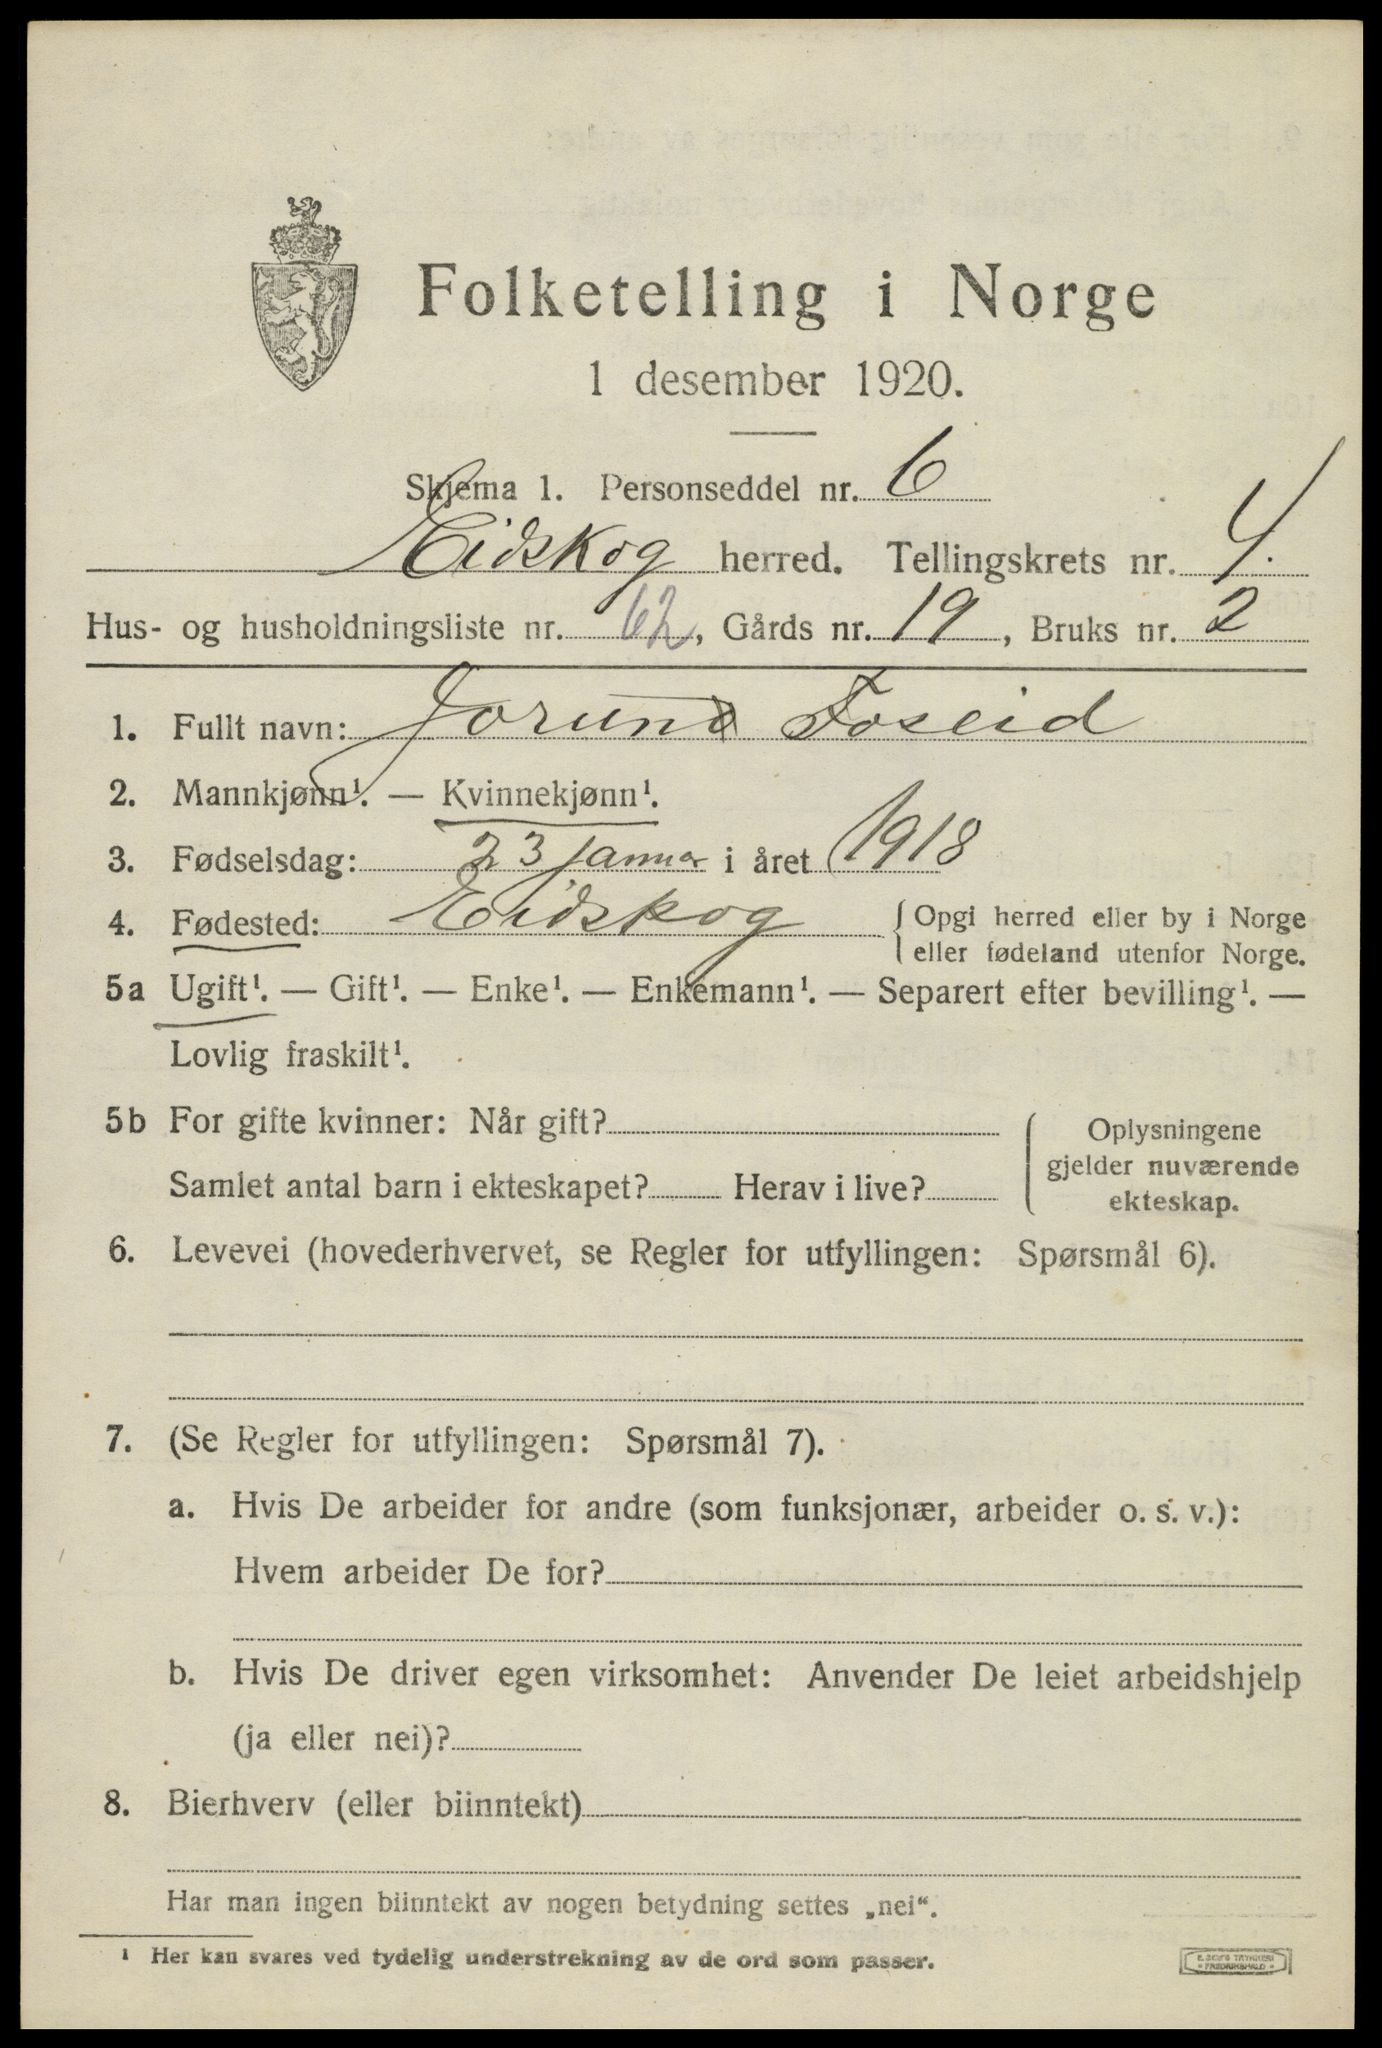 Folketelling i Norge
1 desember 1920.
Skjema 1. Personseddel nr. 6
Eidskog herred. Tellingskrets nr. 4.
Hus- og husholdningsliste nr. 62, Gårds nr. 19, Bruks nr. 2
1. Fullt navn: Jorund Foseid
2. Mannkjønn¹. — Kvinnekjønn¹.
3. Fødselsdag: 23 januar i året 1918
4. Fødested: Eidskog { Opgi herred eller by i Norge
eller fødeland utenfor Norge.
5a Ugift¹. — Gift¹. — Enke¹. — Enkemann¹. — Separert efter bevilling¹. —
Lovlig fraskilt¹.
5b For gifte kvinner: Når gift?
Samlet antal barn i ekteskapet? Herav i live?
Oplysningene
gjelder nuværende
ekteskap.
6. Levevei (hovederhvervet, se Regler for utfyllingen: Spørsmål 6).
7. (Se Regler for utfyllingen: Spørsmål 7).
a. Hvis De arbeider for andre (som funksjonær, arbeider o. s. v.):
Hvem arbeider De for?
b. Hvis De driver egen virksomhet: Anvender De leiet arbeidshjelp
(ja eller nei)?
8. Bierhverv (eller biinntekt)
Har man ingen biinntekt av nogen betydning settes „nei“.
¹ Her kan svares ved tydelig understrekning av de ord som passer.